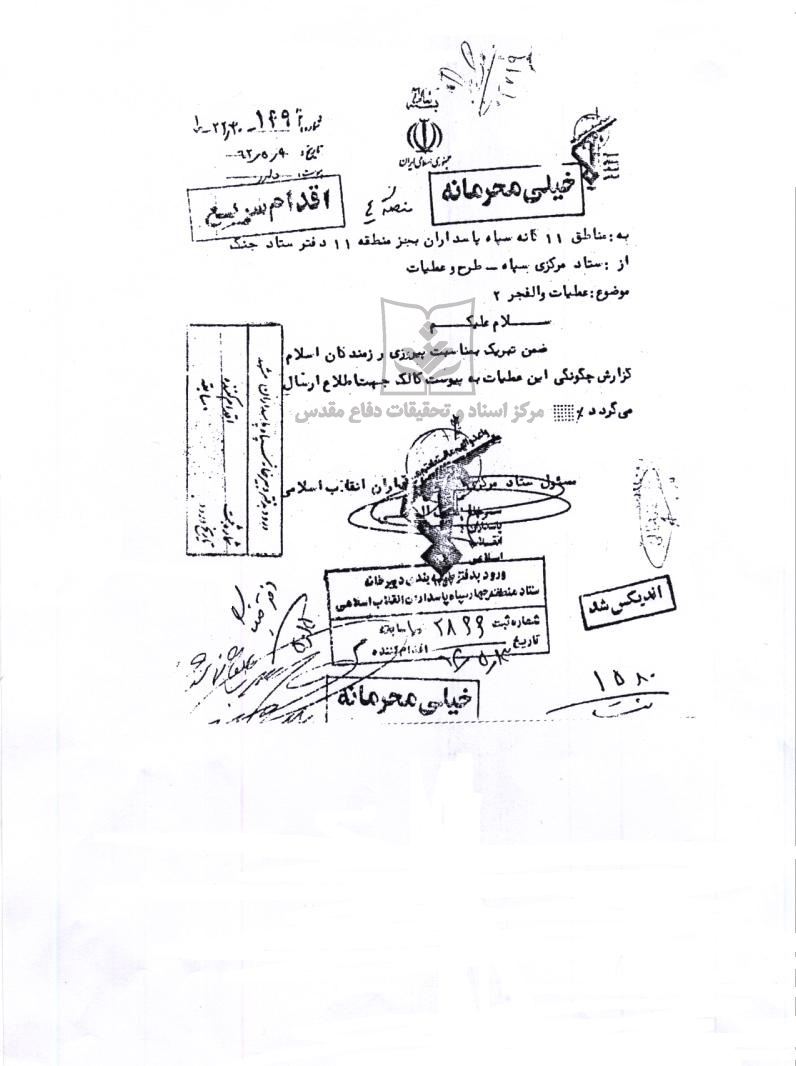 بسمه تعالی
جمهوری اسلامی ایران
تاریخ: ۶۲٫۵٫۹
خیلی محرمانه
اقدام سریع
به: مناطق ۱۱ گانه سپاه پاسداران بجز منطقه ۱۱ دفتر ستاد جنگ
از: ستاد مرکزی سپاه - طرح و عملیات
موضوع: عملیات والفجر ۲
سلام علیکم
ضمن تبریک بمناسبت پیروزی رزمندگان اسلام
گزارش چگونگی این عملیات به پیوست کالک جهت اطلاع ارسال
می گردد
مرکز اسناد و تحقیقات دفاع مقدس
مسئول ستاد مرکزی پاسداران انقلاب اسلامی
پاسداران
انقلاب
اسلامی
اقدام کننده
سابقه
شماره ثبت
تاریخ ورود
ورود بدفتر دبیرخانه
ستاد منطقه چهار سپاه پاسداران انقلاب اسلامی
شماره ثبت ۲۸۹۹ سابقه
تاریخ اقدام کننده
اندیکس شد
خیلی محرمانه
۱۵۸۰
ثبت